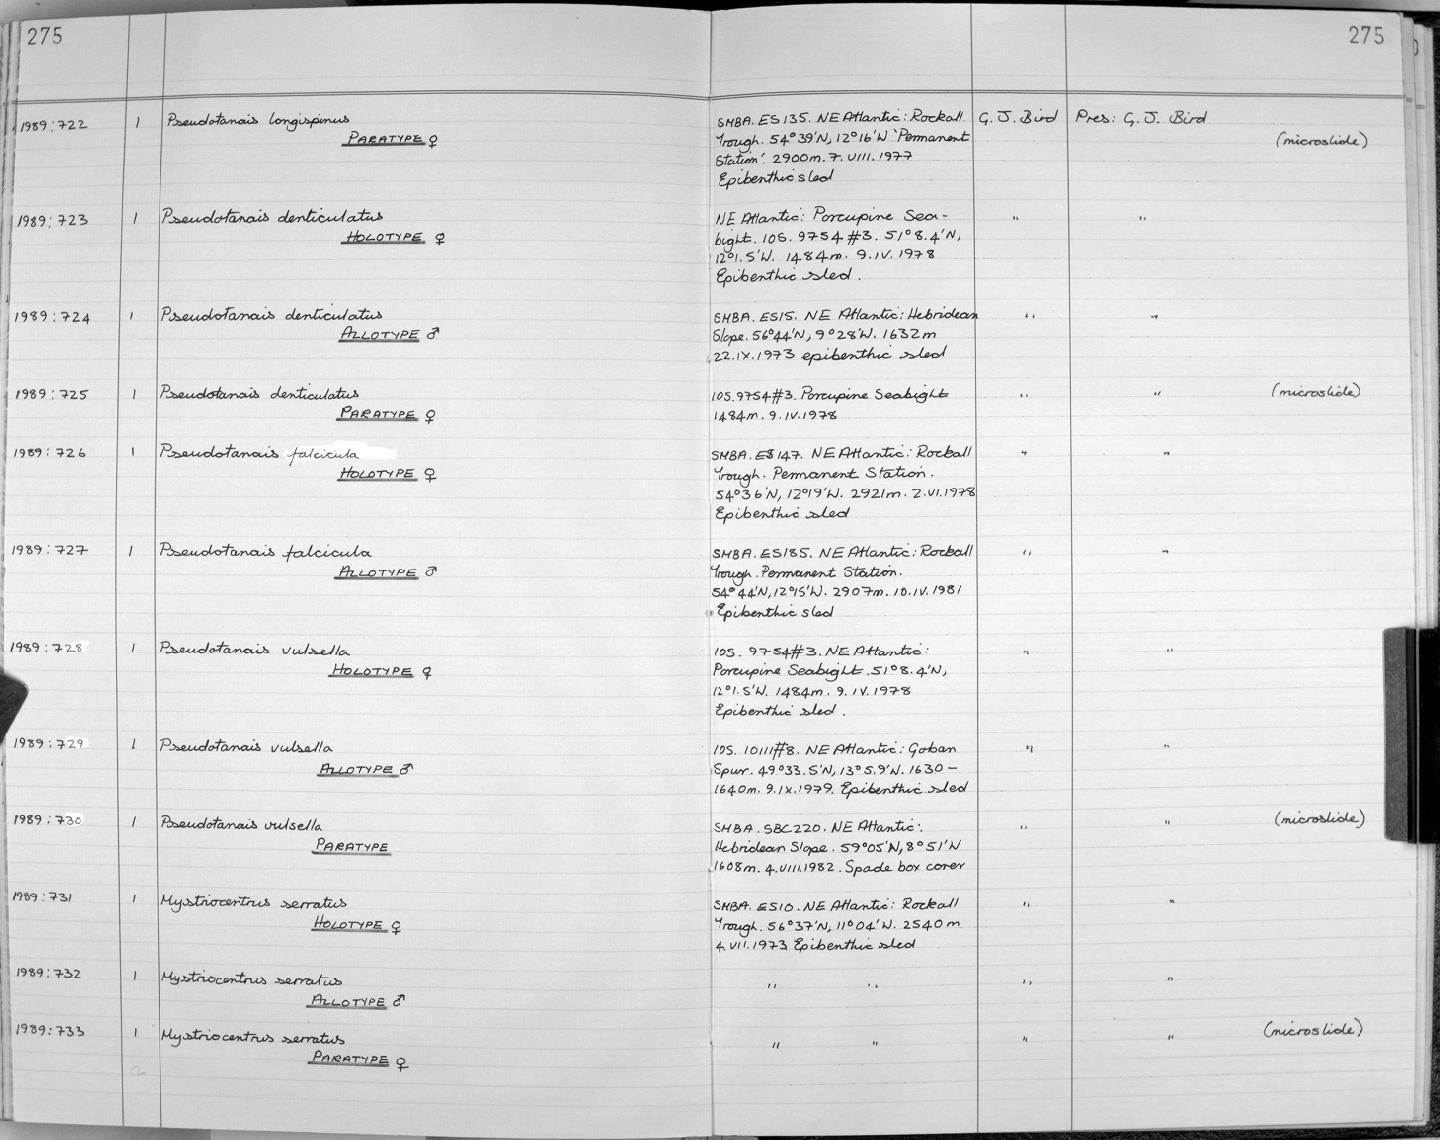 275
275
1989:722 1 Pseudotanais longispinus SMBA. ES135. NE Atlantic: Rockall G. J. Bird Pres: G. J. Bird
PARATYPE ♀ Trough. 54°39'N, 12°16'W 'Permanent (microslide)
Station'. 2900m. 7.VIII.1977
Epibenthic sled
1989:723 1 Pseudotanais denticulatus NE Atlantic: Porcupine Sea- " "
HOLOTYPE ♀ bight. IOS. 9754 #3. 51°8.4'N,
12°1.5'W. 1484m. 9.IV.1978
Epibenthic sled.
1989:724 1 Pseudotanais denticulatus SMBA. ES15. NE Atlantic: Hebridean " "
ALLOTYPE ♂ Slope. 56°44'N, 9°28'W. 1632m
22.IX.1973 epibenthic sled
1989:725 1 Pseudotanais denticulatus IOS.9754#3. Porcupine Seabight " " (microslide)
PARATYPE ♀ 1484m. 9.IV.1978
1989:726 1 Pseudotanais falcicula SMBA. ES147. NE Atlantic: Rockall " "
HOLOTYPE ♀ Trough. Permanent Station.
54°36'N, 12°19'W. 2921m. 2.VI.1978
Epibenthic sled
1989:727 1 Pseudotanais falcicula SMBA. ES185. NE Atlantic: Rockall " "
ALLOTYPE ♂ Trough. Permanent Station.
54°44'N, 12°15'W. 2907m. 10.IV.1981
Epibenthic sled
1989:728 1 Pseudotanais vulsella IOS. 9754#3. NE Atlantic: " "
HOLOTYPE ♀ Porcupine Seabight. 51°8.4'N,
12°1.5'W. 1484m. 9.IV.1978
Epibenthic sled.
1989:729 1 Pseudotanais vulsella IOS. 10111#8. NE Atlantic: Goban " "
ALLOTYPE ♂ Spur. 49°33.5'N, 13°5.9'W. 1630-
1640m. 9.IX.1979. Epibenthic sled
1989:730 1 Pseudotanais vulsella SMBA. SBC220. NE Atlantic: " " (microslide)
PARATYPE Hebridean Slope. 59°05'N, 8°51'W
1608m. 4.VIII.1982. Spade box corer
1989:731 1 Mystriocentrus serratus SMBA. ES10. NE Atlantic: Rockall " "
HOLOTYPE ♀ Trough. 56°37'N, 11°04'W. 2540m
4.VII.1973 Epibenthic sled
1989:732 1 Mystriocentrus serratus " " " "
ALLOTYPE ♂
1989:733 1 Mystriocentrus serratus " " " " (microslide)
PARATYPE ♀